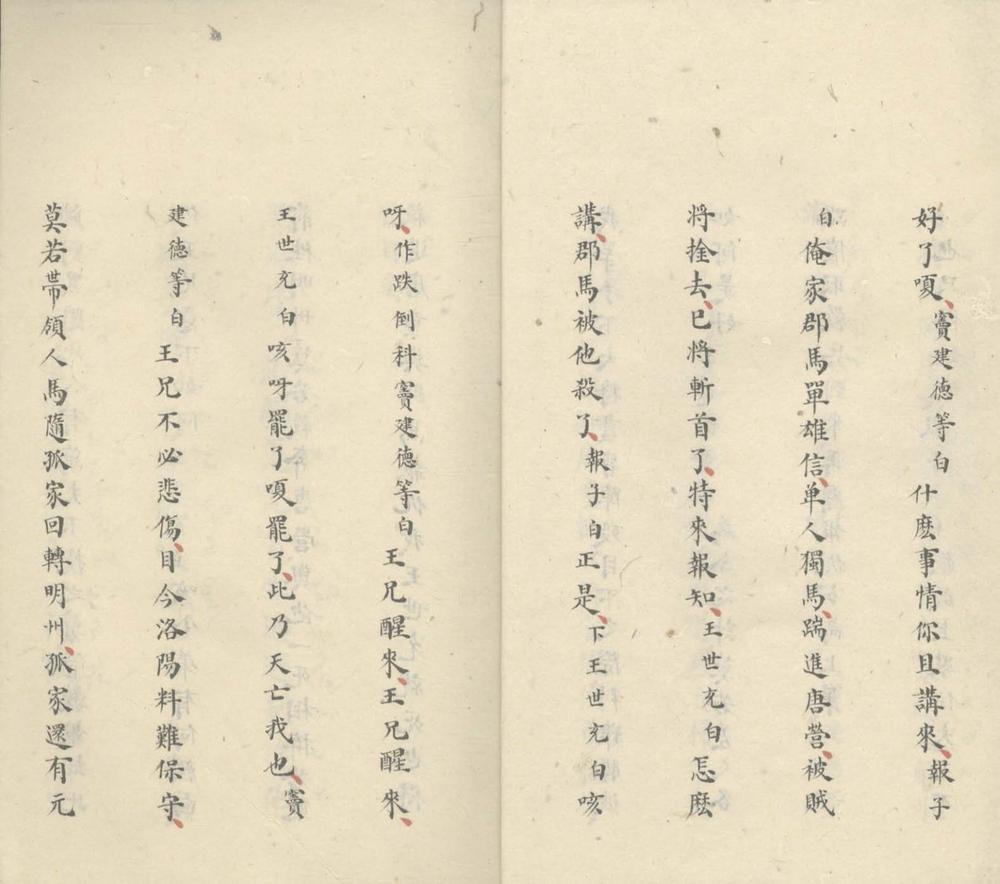 好了嗄、竇建德等白什麽事情你且講來、報子
白俺家郡馬單雄信、单人獨馬、踹進唐營、被賊
將拴去、巳將斬首了、特來報知、王世充白怎麽
講、郡馬被他殺了、報子白正是、下王世充白咳
呀、作跌倒科竇建德等白王兄醒來、王兄醒來、
王世充白咳呀罷了嗄罷了、此乃天亡我也、竇
建德等白王兄不必悲傷、目今洛陽料難保守、
莫若帯領人馬隨孤家回轉明州、孤家還有元